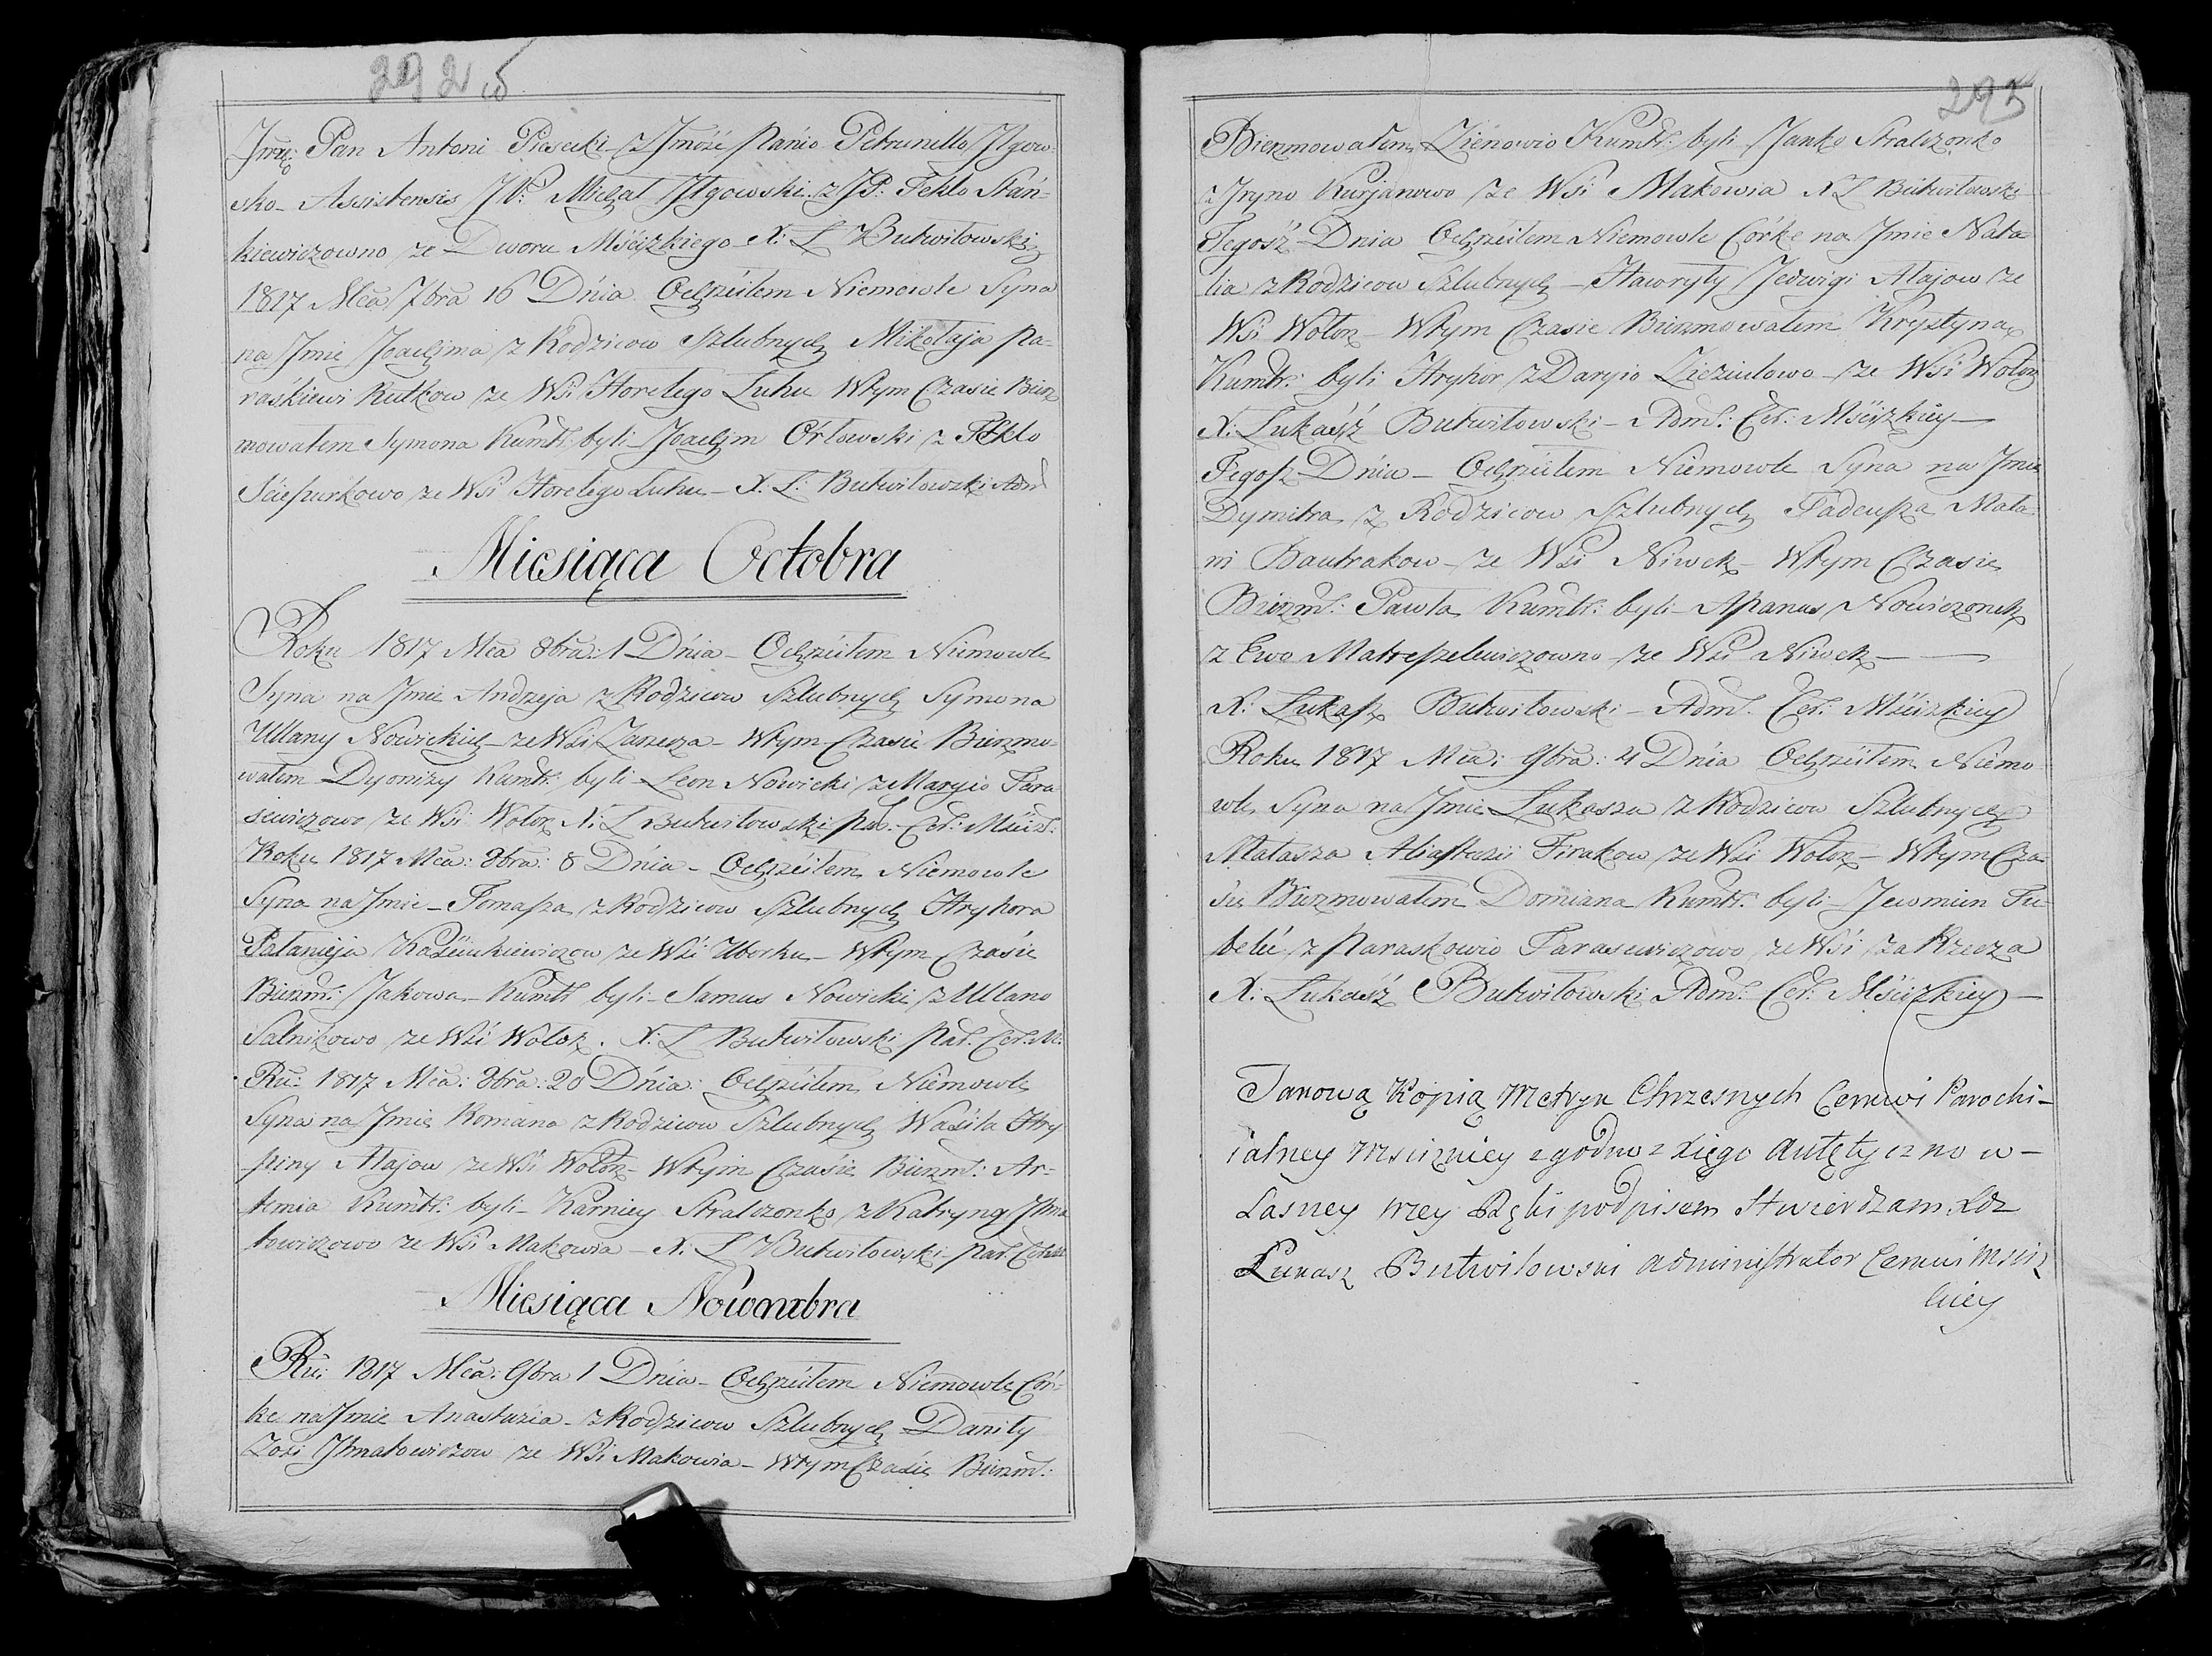 292 об
Jmć: Pan Antoni Piasecki z Jmość Panio Petrunello Jlgow-
sko Assistensis JP: Michał Jlgowski z JP: Teklo Stań-
kiewiczowno ze Dworu Mścizkiego X: L Butwiłowski
1817 Mca 7bra 16 Dnia Ochrzciłem Niemowle Syna
na Jmie Joachima z Rodzicow Szlubnych Mikołaja Pa-
raskiewi Rutkow ze Wsi Horełego Luhu Wtym Czasie Birz
mowałem Symona Kumtr: byli Joachim Orłowski z Teklo
Sciepurkowo ze Wsi Horełego Luhu X. L: Butwiłowski Adm
Miesiąca Octobra
Roku 1817 Mca 8bra: 1 Dnia Ochrzciłem Niemowle
Syna na Jmie Andrzeja z Rodzicow Szlubnych Symona
Ullany Nowickich ze Wsi Zarzecza Wtym Czasie Birzmo-
wałem Dyonizy Kumtr: byli Leon Nowicki z Maryio Tara
siewiczowo ze Wsi Wołok X: L Butwiłowski Par: Cer: Mścizk:
Roku 1817 Mca: 8bra: 8 Dnia Ochrzciłem Niemowle
Syna na Jmie Tomasza z Rodzicow Szlubnych Hryhora
Pałanieja ze Wsi Uborku Wtym Czasie
Birzm: Jakowa Kumtr byli Samus Nowicki z Ullano
Salnikowo ze Wsi Wołok. X: L Butwiłowski Par. Cer: M:
Ru: 1817 Mca: 8bra: 20 Dnia: Ochrzciłem Niemowle
Syna na Jmie Romana z Rodzicow Szlubnych Wasila Hry
piny Ałajow ze Wsi Wołok Wtym Czasie Birzm: Ar-
temia Kumtr: byli Karniey Stralczonko z Katryną Jhna
towiczowo ze Wsi Makowia X. L Butwiłowski Par. Cer:
Miesiąca Nowembra
Ru: 1817 Mca: 9bra 1 Dnia Ochrzciłem Niemowle Cór-
ke na Jmie Anastazia z Rodzicow Szlubnych Daniły
Zosi Jhnatowiczow ze Wsi Makowia Wtym Czasie Birzm:
293
Bierzmowałem Zienowio Kumtr: byli Janko Stralczonko
z Jryno Kurjanowo ze Wsi Makowia X L Butwiłowski
Tegosz Dnia Ochrzciłem Niemowle Córke na Jmie Nata
lia z Rodzicow Szlubnych Hawryły Jedwigi Ałajow ze
Wsi Wołok Wtym Czasie Birzmowałem Krystyna
Kumtr: byli Hryhor z Daryio ze Wsi Wołok
X: Lukasz Butwiłowski Adm: Cer: Mścizkiey
Tegosz Dnia Ochrzciłem Niemowle Syna na Jmie
Dymitra z Rodzicow Szlubnych Tadeusza Mała-
ni Bautrakow ze Wsi Niwek Wtym Czasie
Birzm: Pawła Kumtr: byli Apanas Nowiczonek
z Ewo Matrepelewiczowno ze Wsi Niwek
X: Lukasz Butwiłowski Adm: Cer: Mścizkiey
Roku 1817 Mca: 9bra: 4 Dnia Ochrzciłem Niemo
wle Syna na Jmie Lukasza z Rodzicow Szlubnych
Małasza Tirakow ze Wsi Wołok Wtym Cza-
sie Birzmowałem Domiana Kumtr: byli Jewmien Tu-
beleć z Paraskowio Tarasewiczowo ze Wsi za Rzecza
X: Lukasz Butwiłowski Adm: Cer: Mścizkiey
Janową Kopią Metryk Chrzesnych Cerkwi Parochi-
ialney Mscizkiey zgodno z Xięgo Autętyczno w-
Lasney Mey Ręki podpisem Stwierdzam Xdz
Lukasz Butwiłowski Administrator Cerkwi Mściz
kiey